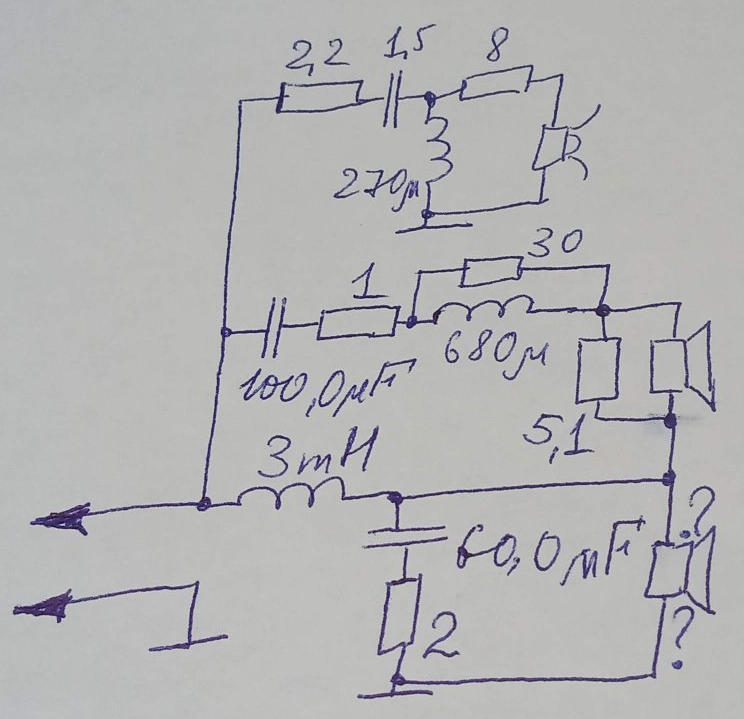 2,2 1,5 8
270μ
30
1
680μ
100,0μF
5,1
3mH
?
60,0μF
2
?